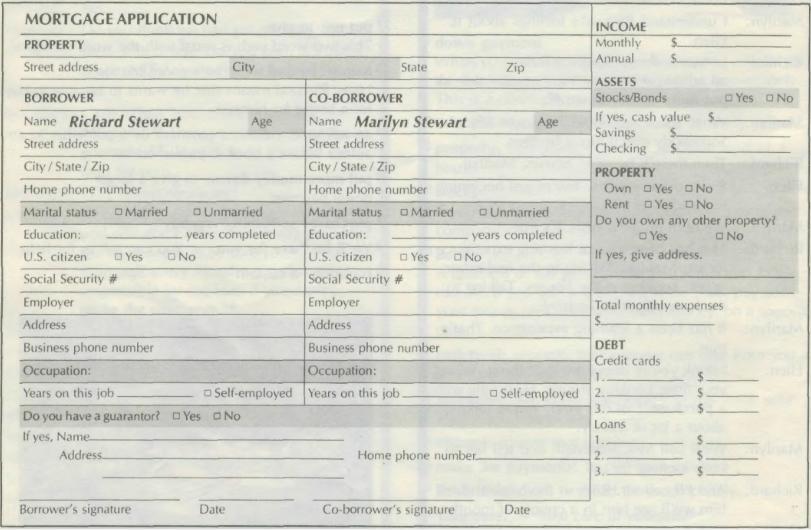 MORTGAGE APPLICATION
PROPERTY
Street address City State Zip
BORROWER
Name Richard Stewart Age
Street address
City / State / Zip
Home phone number
Marital status □ Married □ Unmarried
Education: ________ years completed
U.S. citizen □ Yes □ No
Social Security #
Employer
Address
Business phone number
Occupation:
Years on this job ________ □ Self-employed
CO-BORROWER
Name Marilyn Stewart Age
Street address
City / State / Zip
Home phone number
Marital status □ Married □ Unmarried
Education: ________ years completed
U.S. citizen □ Yes □ No
Social Security #
Employer
Address
Business phone number
Occupation:
Years on this job ________ □ Self-employed
Do you have a guarantor? □ Yes □ No
If yes, Name________
Address________ Home phone number________
Borrower's signature Date Co-borrower's signature Date
INCOME
Monthly $________
Annual $________
ASSETS
Stocks/Bonds □ Yes □ No
If yes, cash value $________
Savings $________
Checking $________
PROPERTY
Own □ Yes □ No
Rent □ Yes □ No
Do you own any other property?
□ Yes □ No
If yes, give address.
Total monthly expenses
$________
DEBT
Credit cards
1.________ $________
2.________ $________
3.________ $________
Loans
1.________ $________
2.________ $________
3.________ $________